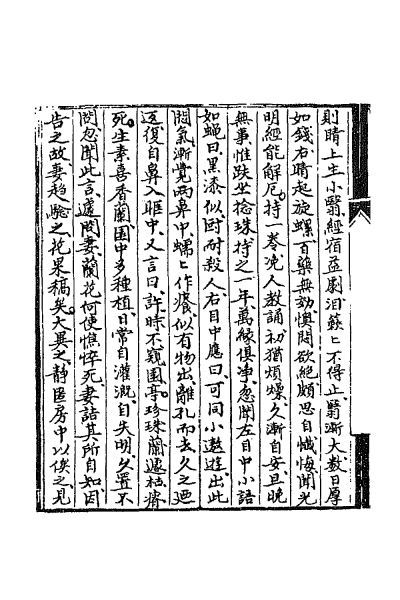 則睛上生小翳經宿益劇泪簌〻不得止翳漸大数日厚
如錢右睛起旋螺百藥無効懊悶欲絶頗思自懺悔聞光
明經能解厄持一卷浼人教誦初猶煩燥久漸自安旦晚
無事惟趺坐捻珠持之一年萬緣俱净忽聞左目中小語
如蝇曰黑漆似尀耐殺人右目中應曰可同小遨遊出此
悶氣漸覺兩鼻中蠕〻作癢似有物出離孔而去久之廼
返復自鼻入眶中又言曰許時不窺園亭珍珠蘭遽枯瘠
死生素喜香蘭園中多種植日常自灌溉自失明久置不
問忽聞此言遽問妻蘭花何使憔悴死妻詰其所自知因
告之故妻趋驗之花果稿矣大異之靜匿房中以俟之見